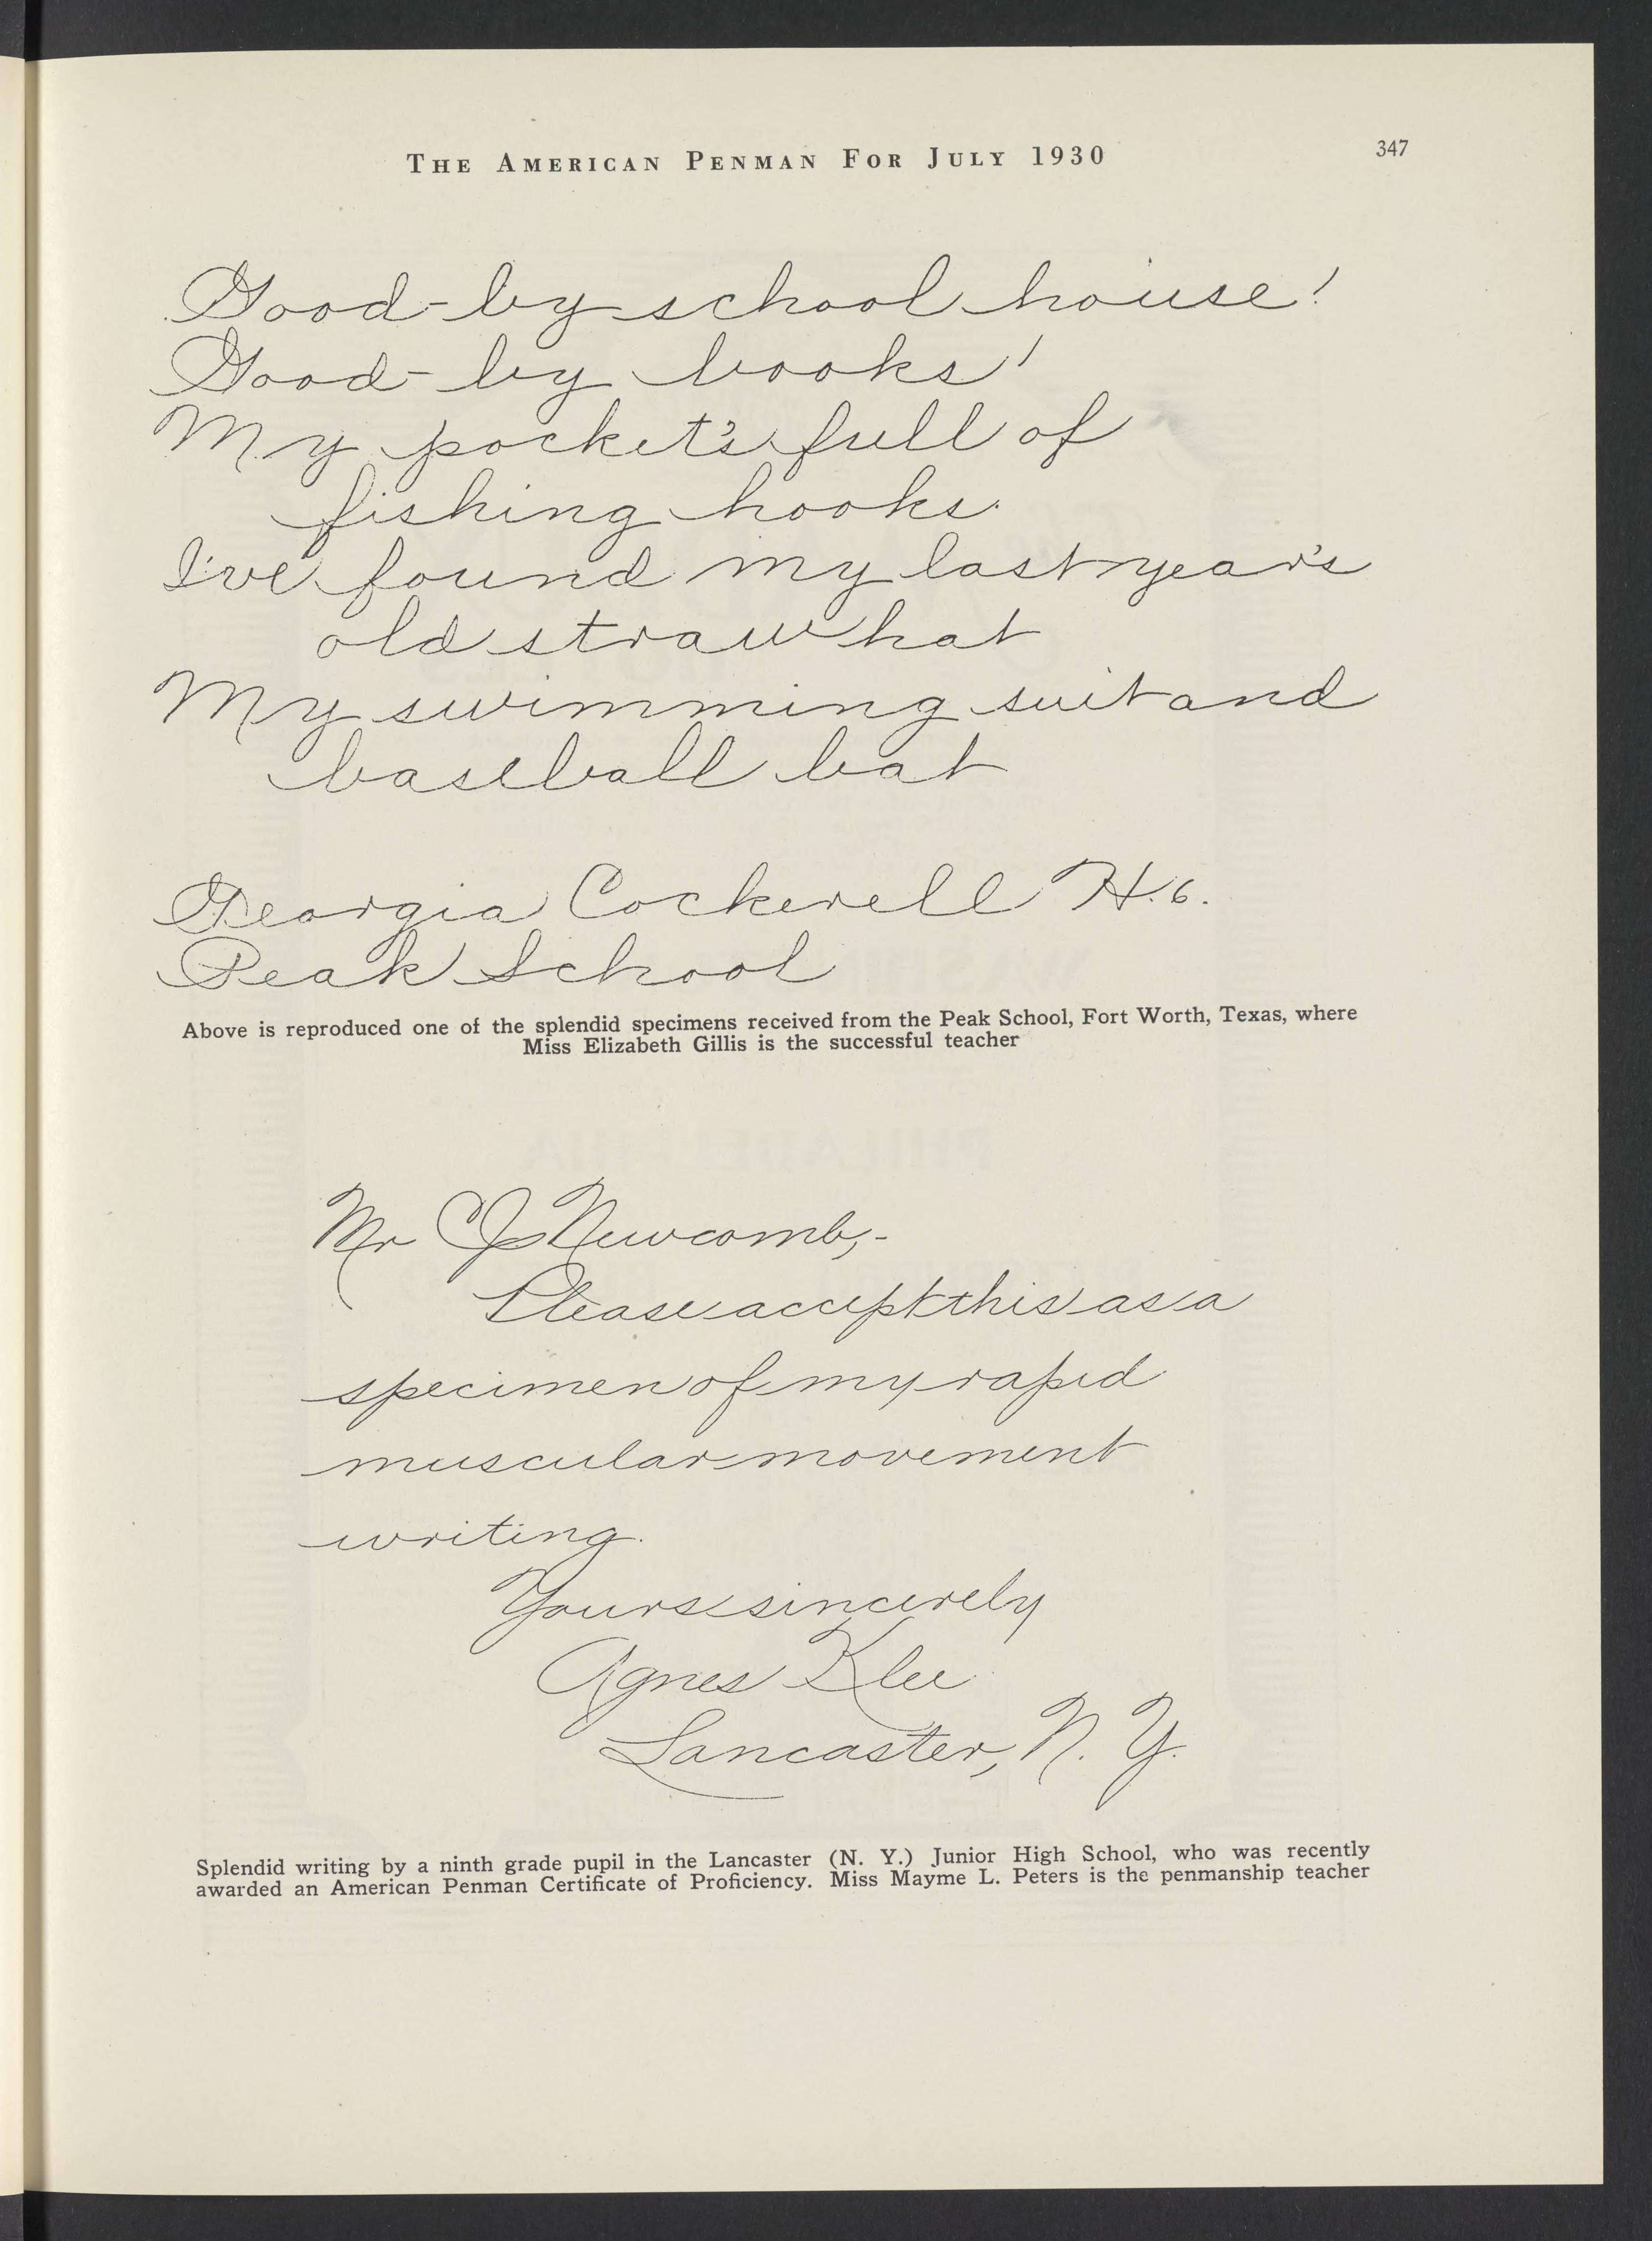 THE AMERICAN PENMAN FOR JULY 1930
347
Good-by school house!
Good-by books!
My pocket's full of
fishing hooks.
I've found my last year's
old straw hat
My swimming suit and
baseball bat
Georgia Cockerell H.6.
Peak School
Above is reproduced one of the splendid specimens received from the Peak School, Fort Worth, Texas, where
Miss Elizabeth Gillis is the successful teacher
Mr C J Newcomb,-
Please accept this as a
specimen of my rapid
muscular movement
writing.
Yours sincerely
Agnes Klee
Lancaster, N. Y.
Splendid writing by a ninth grade pupil in the Lancaster (N. Y.) Junior High School, who was recently
awarded an American Penman Certificate of Proficiency. Miss Mayme L. Peters is the penmanship teacher